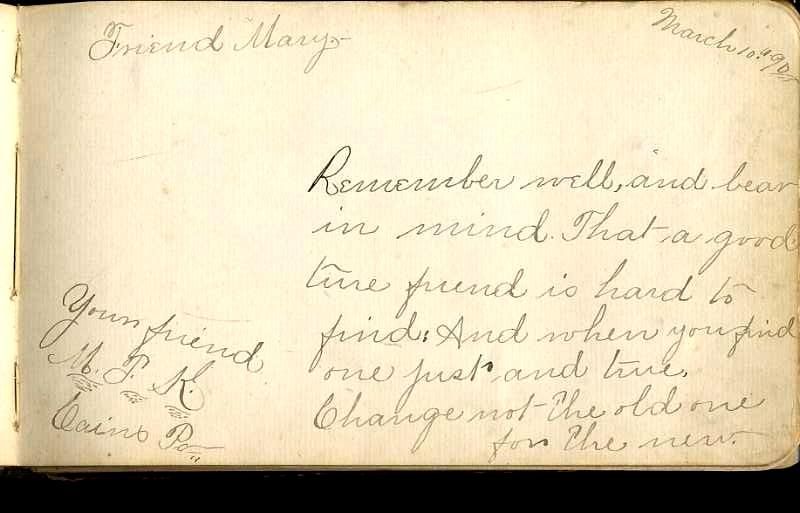 Friend Mary-
March 10. '90
Remember well, and bear
in mind. That a good
ture friend is hard to
find: And when you find
one just and true.
Change not the old one
for the new.
Your friend
M. F. K.
Cains Pa